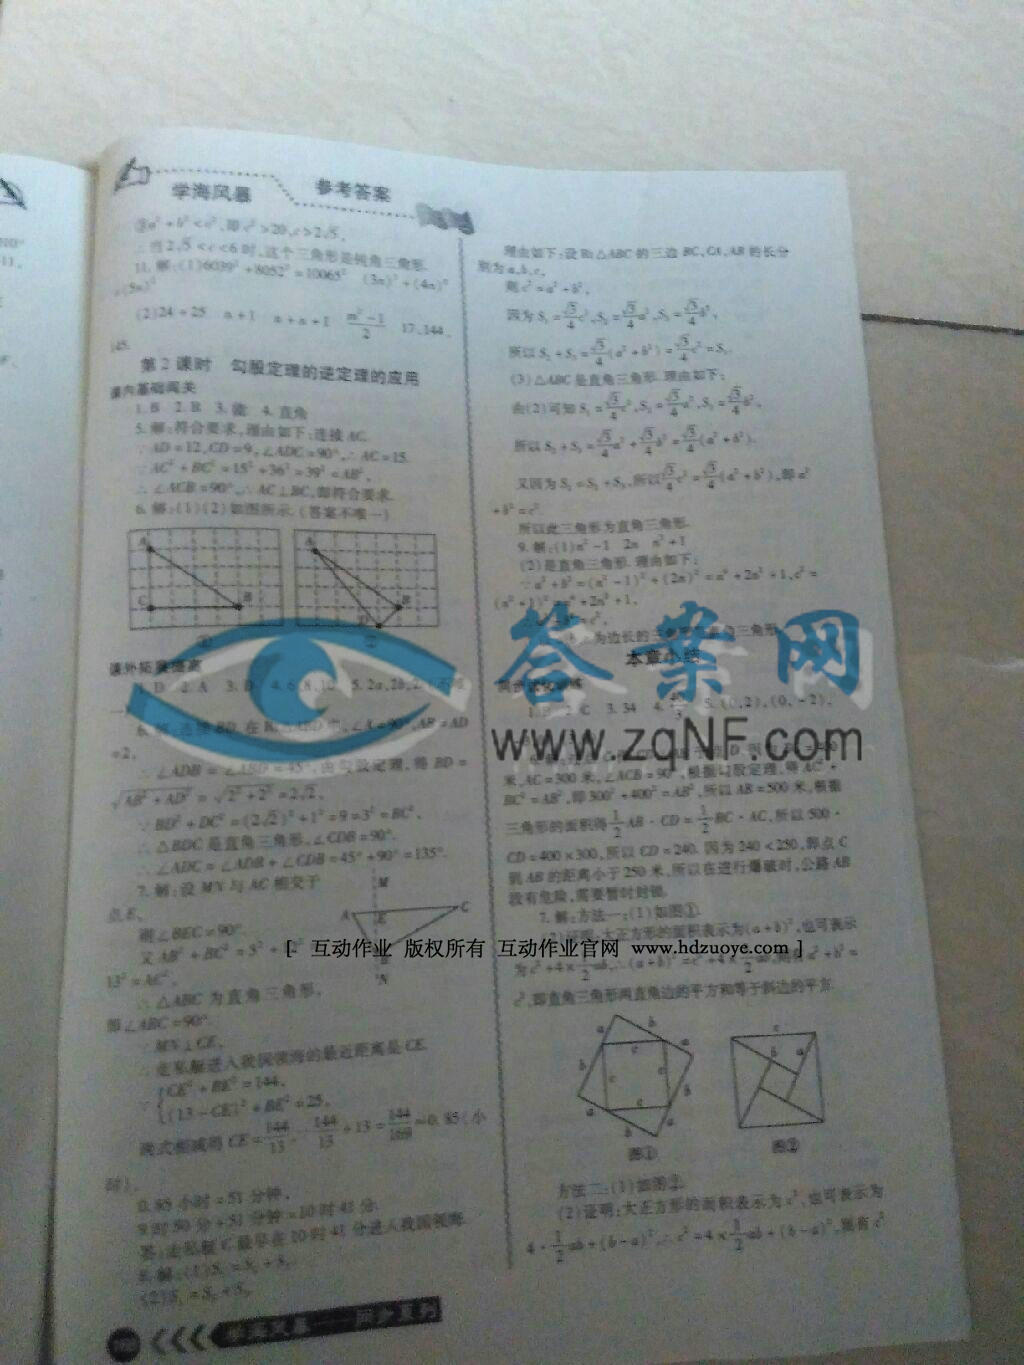 学海风暴 参考答案
③a²+b²<c²,即 c²>20,c>2√5,
∴当2√5<c<6时,这个三角形是钝角三角形.
11.解:(1)6039²+8052²=10065² (3n)²+(4n)²
=(5n)²
(2)24+25 n+1 n+n+1 (m²-1)/2 17,144,
145.
第2课时 勾股定理的逆定理的应用
课内基础闯关
1.B 2.B 3.能 4.直角
5.解:符合要求,理由如下:连接AC.
∵AD=12,CD=9,∠ADC=90°,∴AC=15.
∵AC²+BC²=15²+36²=39²=AB²,
∴∠ACB=90°,∴AC⊥BC,即符合要求.
6.解:(1)(2)如图所示.(答案不唯一)
A
C B
A
B
课外拓展提高
1.D 2.A 3.D
=2,
∴∠ADB=∠ABD=45°,由勾股定理,得BD=
√(AB²+AD²)=√(2²+2²)=2√2,
∵BD²+DC²=(2√2)²+1²=9=3²=BC²,
∴△BDC是直角三角形,∠CDB=90°.
∴∠ADC=∠ADB+∠CDB=45°+90°=135°.
7.解:设MN与AC相交于
点E,
则∠BEC=90°.
又AB²+BC²=5²+
13²=AC²,
∴△ABC为直角三角形,
即∠ABC=90°.
∵MN⊥CE,
∴走私艇进入我国领海的最近距离是CE.
∵{CE²+BE²=144,
(13-CE)²+BE²=25,
两式相减得CE=144/13, 144/13÷13=144/169≈0.85(小
时),
0.85小时=51分钟,
9时50分+51分钟=10时41分.
答:走私艇C最早在10时41分进入我国领海.
8.解:(1)S₁=S₂+S₃.
(2)S₁=S₂+S₃.
M
A E C
N
学海风暴——同步系列
理由如下:设Rt△ABC的三边BC,CA,AB的长分
别为a,b,c,
则c²=a²+b²,
因为S₁=√3/4c²,S₂=√3/4a²,S₃=√3/4b²,
所以S₂+S₃=√3/4(a²+b²)=√3/4c²=S₁.
(3)△ABC是直角三角形.理由如下:
由(2)可知S₁=√3/4c²,S₂=√3/4a²,S₃=√3/4b²,
所以S₂+S₃=√3/4a²+√3/4b²=√3/4(a²+b²).
又因为S₁=S₂+S₃,所以√3/4c²=√3/4(a²+b²),即a²
+b²=c².
所以此三角形为直角三角形.
9.解:(1)n²-1 2n n²+1
(2)是直角三角形.理由如下:
∵a²+b²=(n²-1)²+(2n)²=n⁴+2n²+1,c²=
(n²+1)²=n⁴+2n²+1,
为边长的三角形
本章小结
C 3.34 5.(0,2),(0,-2),
米,AC=300米,∠ACB=90°,根据勾股定理,得AC²+
BC²=AB²,即300²+400²=AB²,所以AB=500米,根据
三角形的面积得1/2AB·CD=1/2BC·AC,所以500·
CD=400×300,所以CD=240.因为240<250,即点C
到AB的距离小于250米,所以在进行爆破时,公路AB
段有危险,需要暂时封锁.
7.解:方法一:(1)如图①.
(2)证明:大正方形的面积表示为(a+b)²,也可表示
为c²+4×1/2ab,∴(a+b)²=c²+4×1/2ab, a²+b²=
c²,即直角三角形两直角边的平方和等于斜边的平方.
a b
a
c
c c
b
c
a b
b a
图①
c
b a
图②
方法二:(1)如图②.
(2)证明:大正方形的面积表示为c²,也可表示为
4·1/2ab+(b-a)²,∴c²=4×1/2ab+(b-a)²,则有c²
答案网
www.zqNF.com
[ 互动作业 版权所有 互动作业官网 www.hdzuoye.com ]